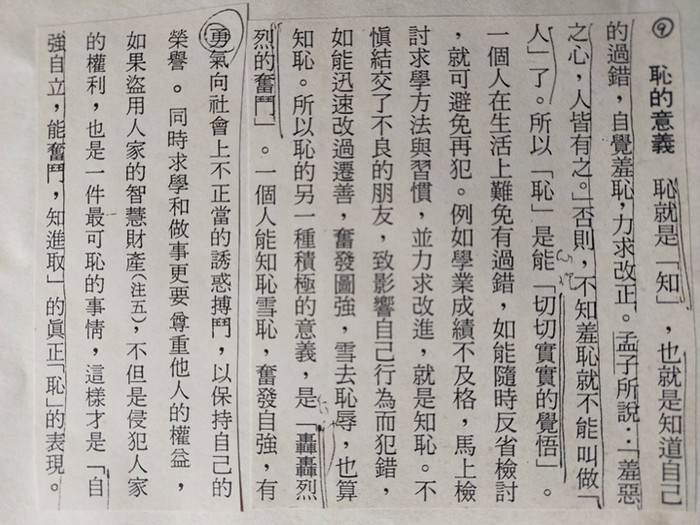 ⑨ 恥的意義 恥就是「知」,也就是知道自己
的過錯,自覺羞恥,力求改正。孟子所說:「羞惡
之心,人皆有之。」否則,不知羞恥就不能叫做「
人」了。所以「恥」是能「切切實實的覺悟」。
一個人在生活上難免有過錯,如能隨時反省檢討
,就可避免再犯。例如學業成績不及格,馬上檢
討求學方法與習慣,並力求改進,就是知恥。不
慎結交了不良的朋友,致影響自己行為而犯錯,
如能迅速改過遷善,奮發圖強,雪去恥辱,也算
知恥。所以恥的另一種積極的意義,是「轟轟烈
烈的奮鬥」。一個人能知恥雪恥,奮發自強,有
勇氣向社會上不正當的誘惑搏鬥,以保持自己的
榮譽。同時求學和做事更要尊重他人的權益,
如果盜用人家的智慧財產(注五),不但是侵犯人家
的權利,也是一件最可恥的事情,這樣才是「自
強自立,能奮鬥,知進取」的眞正「恥」的表現。